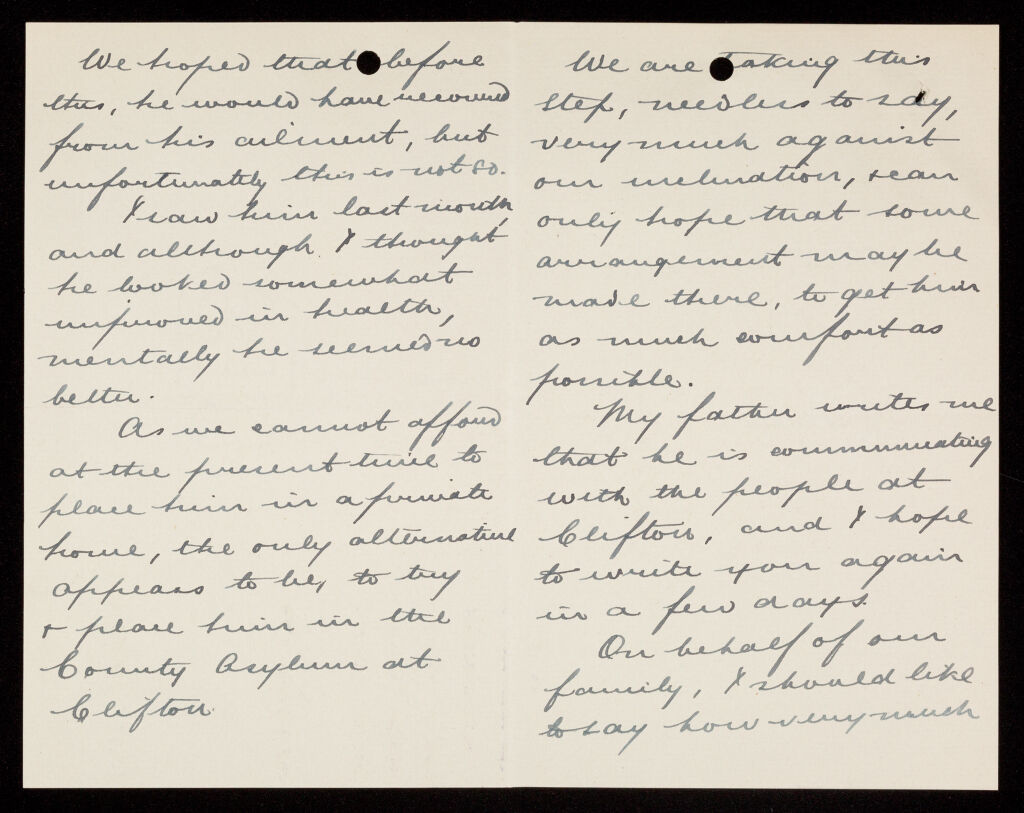 We hoped that before
this, he would have recovered
from his ailment, but
unfortunately this is not so.
I saw him last month,
and although I thought
he looked somewhat
improved in health,
mentally he seemed no
better.
As we cannot afford
at the present time to
place him in a private
home, the only alternative
appears to be, to try
& place him in the
County Asylum at
Clifton.
We are taking this
step, needless to say,
very much against
our inclination, & can
only hope that some
arrangement may be
made there, to get him
as much comfort as
possible.
My father writes me
that he is communicating
with the people at
Clifton, and I hope
to write you again
in a few days.
On behalf of our
family, I should like
to say how very much